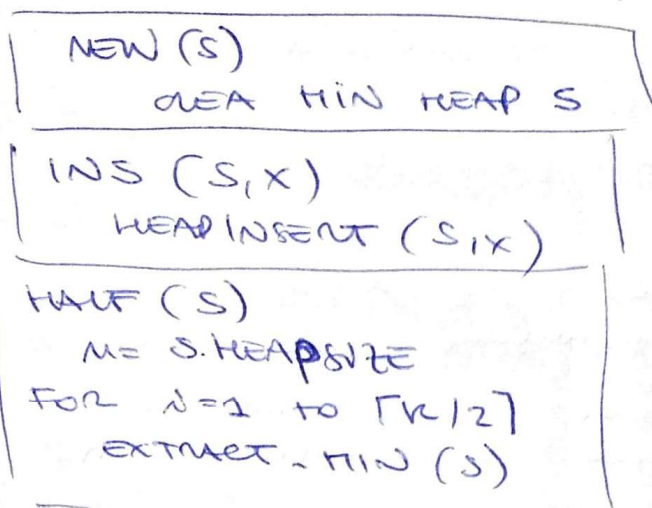 NEW (S)
CREA MIN HEAP S
INS (S, X)
HEAPINSERT (S, X)
HALF (S)
M = S.HEAPSIZE
FOR i=1 to ⌈K/2⌉
EXTRACT-MIN (S)